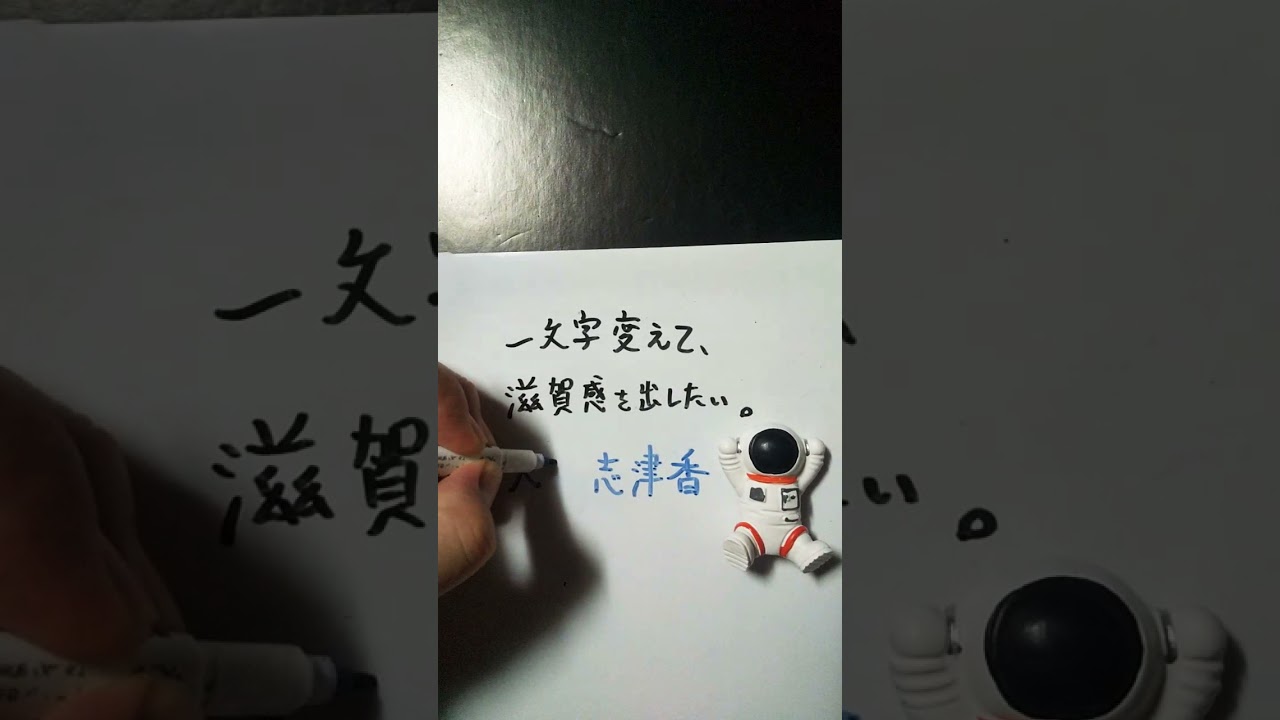 一文字変えて、
滋賀感を出したい。
志津香